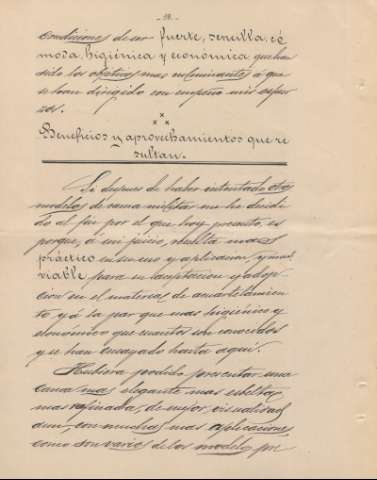 condiciones de ser fuerte, sencilla, có
moda, higiénica y económica que han
sido los objetivos mas culminantes á que
se han dirigido con empeño mis esfuer
zos.
Beneficios y aprovechamientos que re
sultan.
Si despues de haber intentado otros
modelos de cama militar me he decidi
do al fin por el que hoy presento, es
porque, á mi juicio, resulta mas
práctico en su uso y aplicacion, y mas
viable para su aceptacion y adop-
cion en el material de acuartelamien
to y á la par que mas higiénico y
económico que cuantos son conocidos
y se han ensayado hasta aquí.
Hubiera podido presentar una
cama mas elegante mas esbelta,
mas refinada, de mejor visualidad
aun, con muchas mas aplicaciones,
como son varios de los modelos que